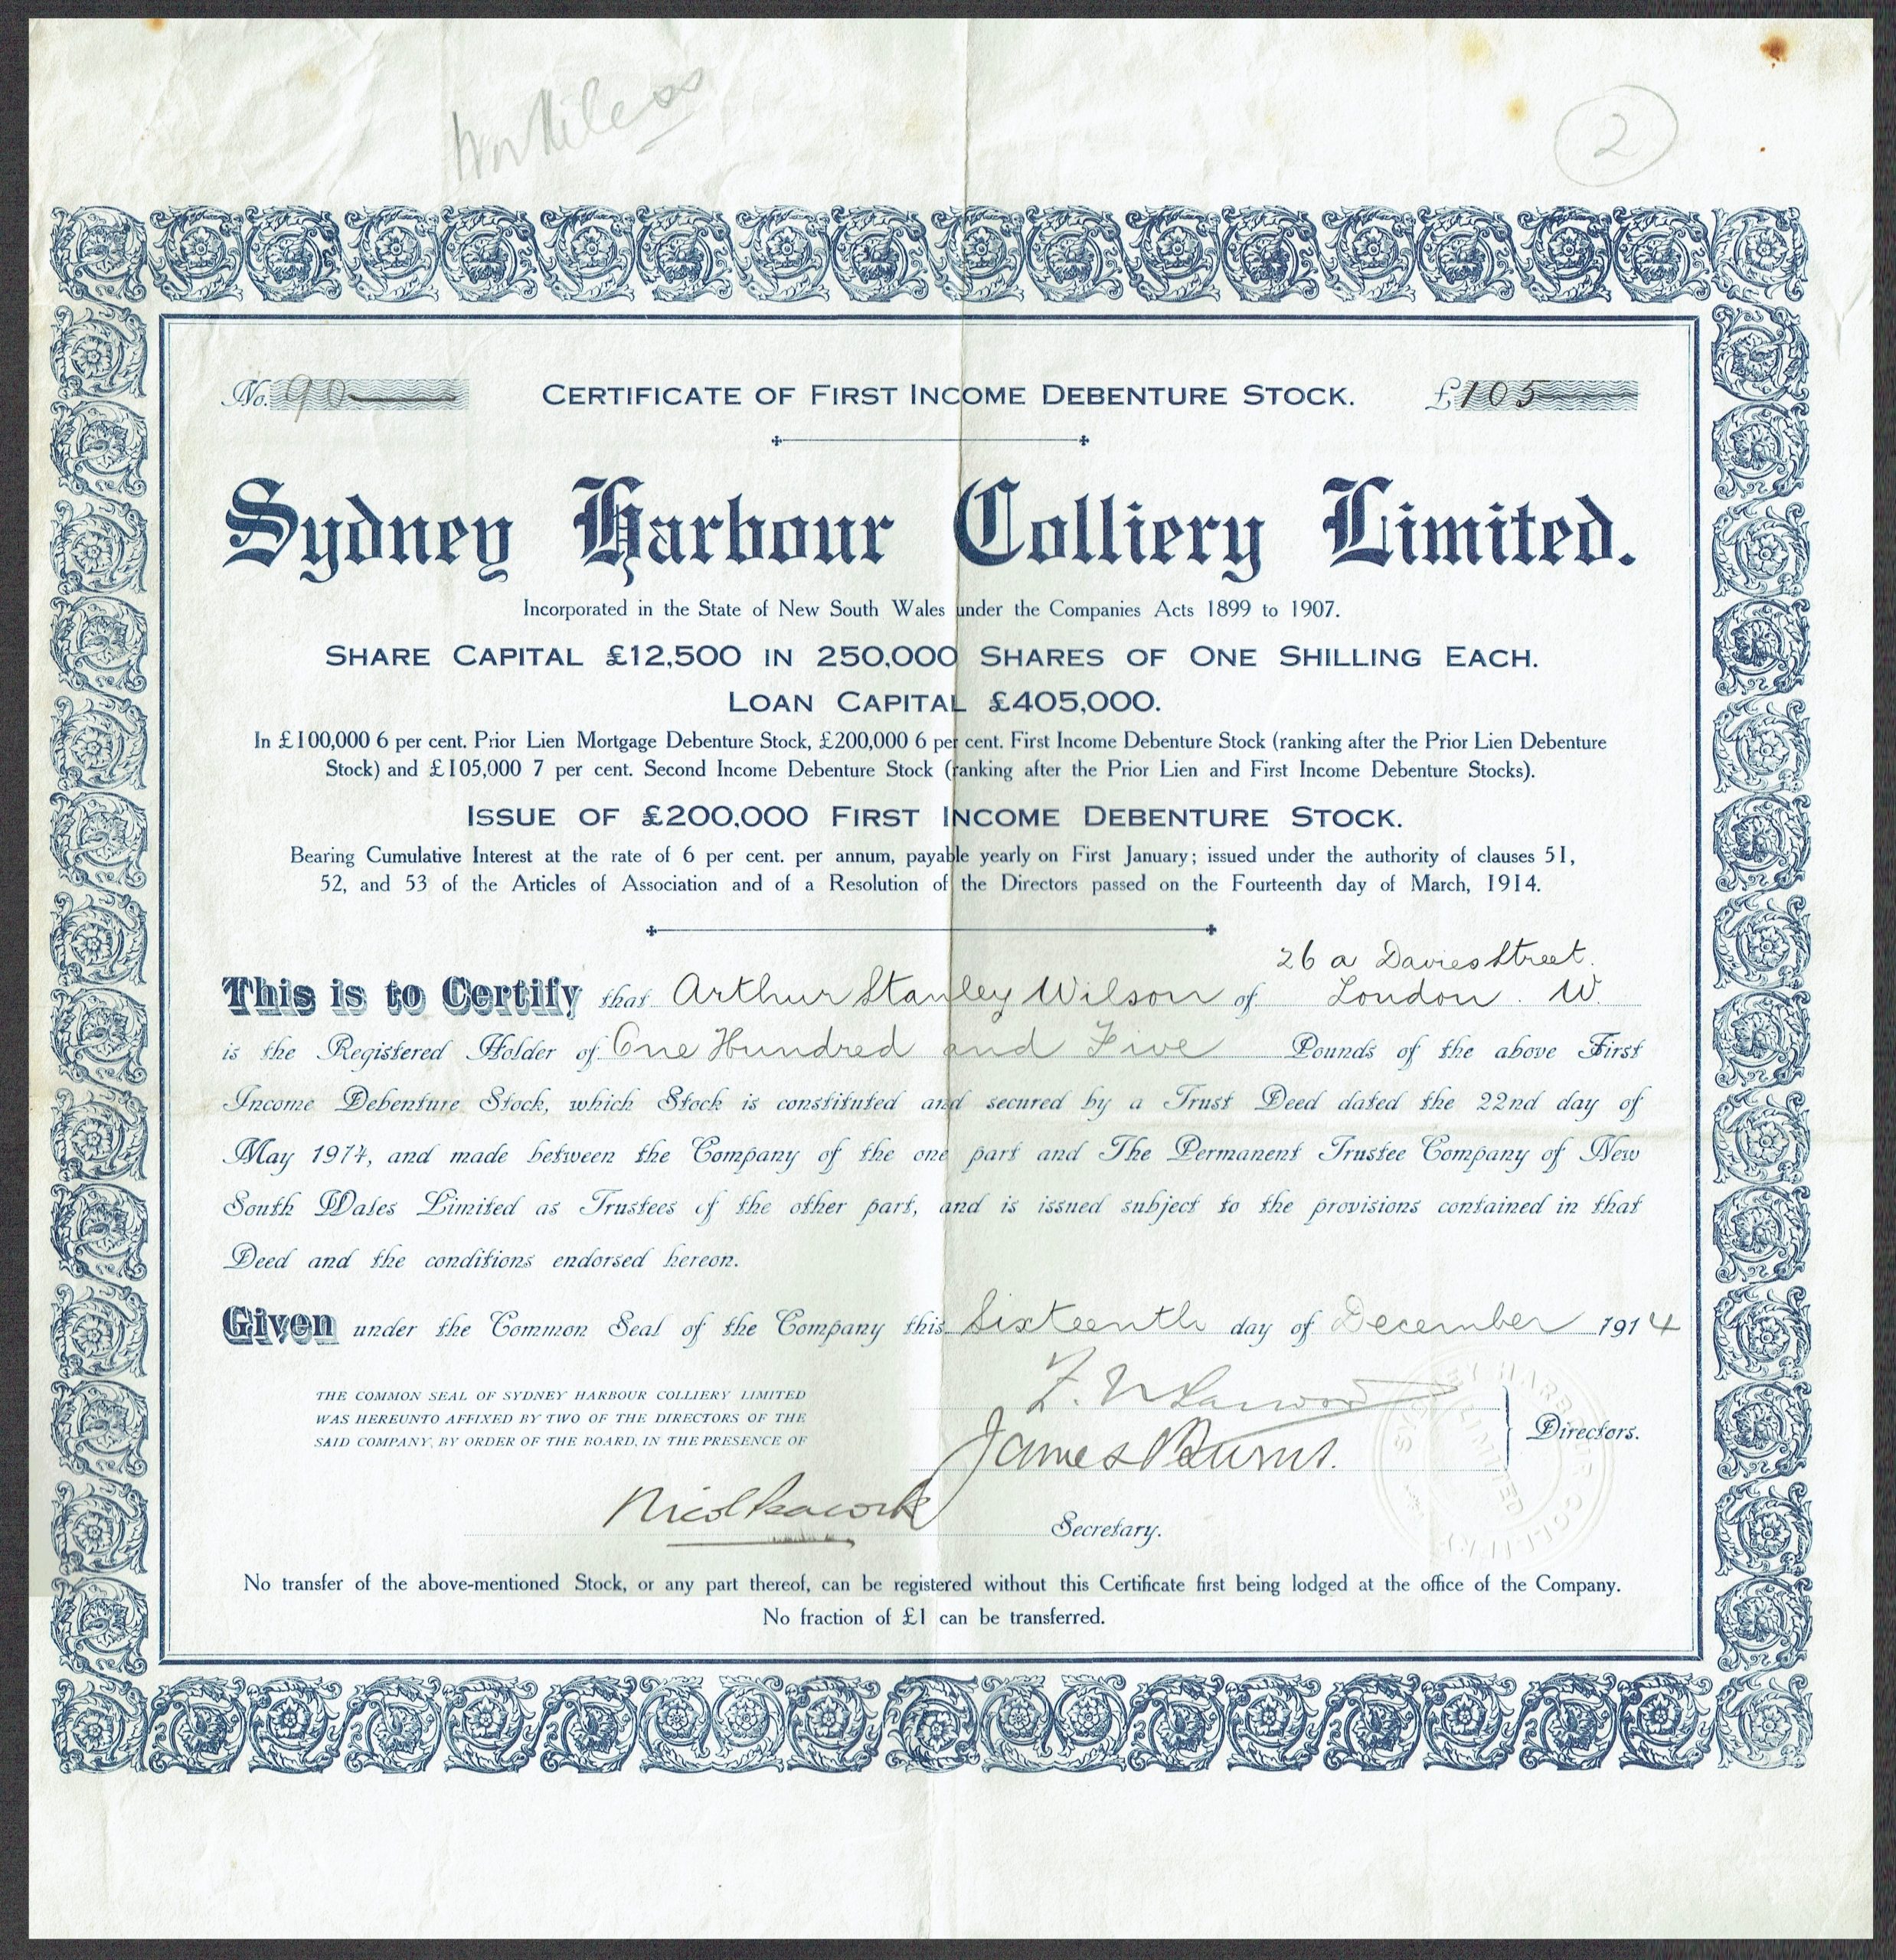 Worthless
2
No. 90
CERTIFICATE OF FIRST INCOME DEBENTURE STOCK.
£105
Sydney Harbour Colliery Limited.
Incorporated in the State of New South Wales under the Companies Acts 1899 to 1907.
SHARE CAPITAL £12,500 IN 250,000 SHARES OF ONE SHILLING EACH.
LOAN CAPITAL £405,000.
In £100,000 6 per cent. Prior Lien Mortgage Debenture Stock, £200,000 6 per cent. First Income Debenture Stock (ranking after the Prior Lien Debenture
Stock) and £105,000 7 per cent. Second Income Debenture Stock (ranking after the Prior Lien and First Income Debenture Stocks).
ISSUE OF £200,000 FIRST INCOME DEBENTURE STOCK.
Bearing Cumulative Interest at the rate of 6 per cent. per annum, payable yearly on First January; issued under the authority of clauses 51,
52, and 53 of the Articles of Association and of a Resolution of the Directors passed on the Fourteenth day of March, 1914.
26 a Davies Street.
This is to Certify that Arthur Stanley Wilson of London. W.
is the Registered Holder of One Hundred and Five Pounds of the above First
Income Debenture Stock, which Stock is constituted and secured by a Trust Deed dated the 22nd day of
May 1914, and made between the Company of the one part and The Permanent Trustee Company of New
South Wales Limited as Trustees of the other part, and is issued subject to the provisions contained in that
Deed and the conditions endorsed hereon.
Given under the Common Seal of the Company this Sixteenth day of December 1914
THE COMMON SEAL OF SYDNEY HARBOUR COLLIERY LIMITED
WAS HEREUNTO AFFIXED BY TWO OF THE DIRECTORS OF THE
SAID COMPANY, BY ORDER OF THE BOARD, IN THE PRESENCE OF
James Burns.
Directors.
SYDNEY HARBOUR COLLIERY
LIMITED
Nicol Peacock
Secretary.
No transfer of the above-mentioned Stock, or any part thereof, can be registered without this Certificate first being lodged at the office of the Company.
No fraction of £1 can be transferred.